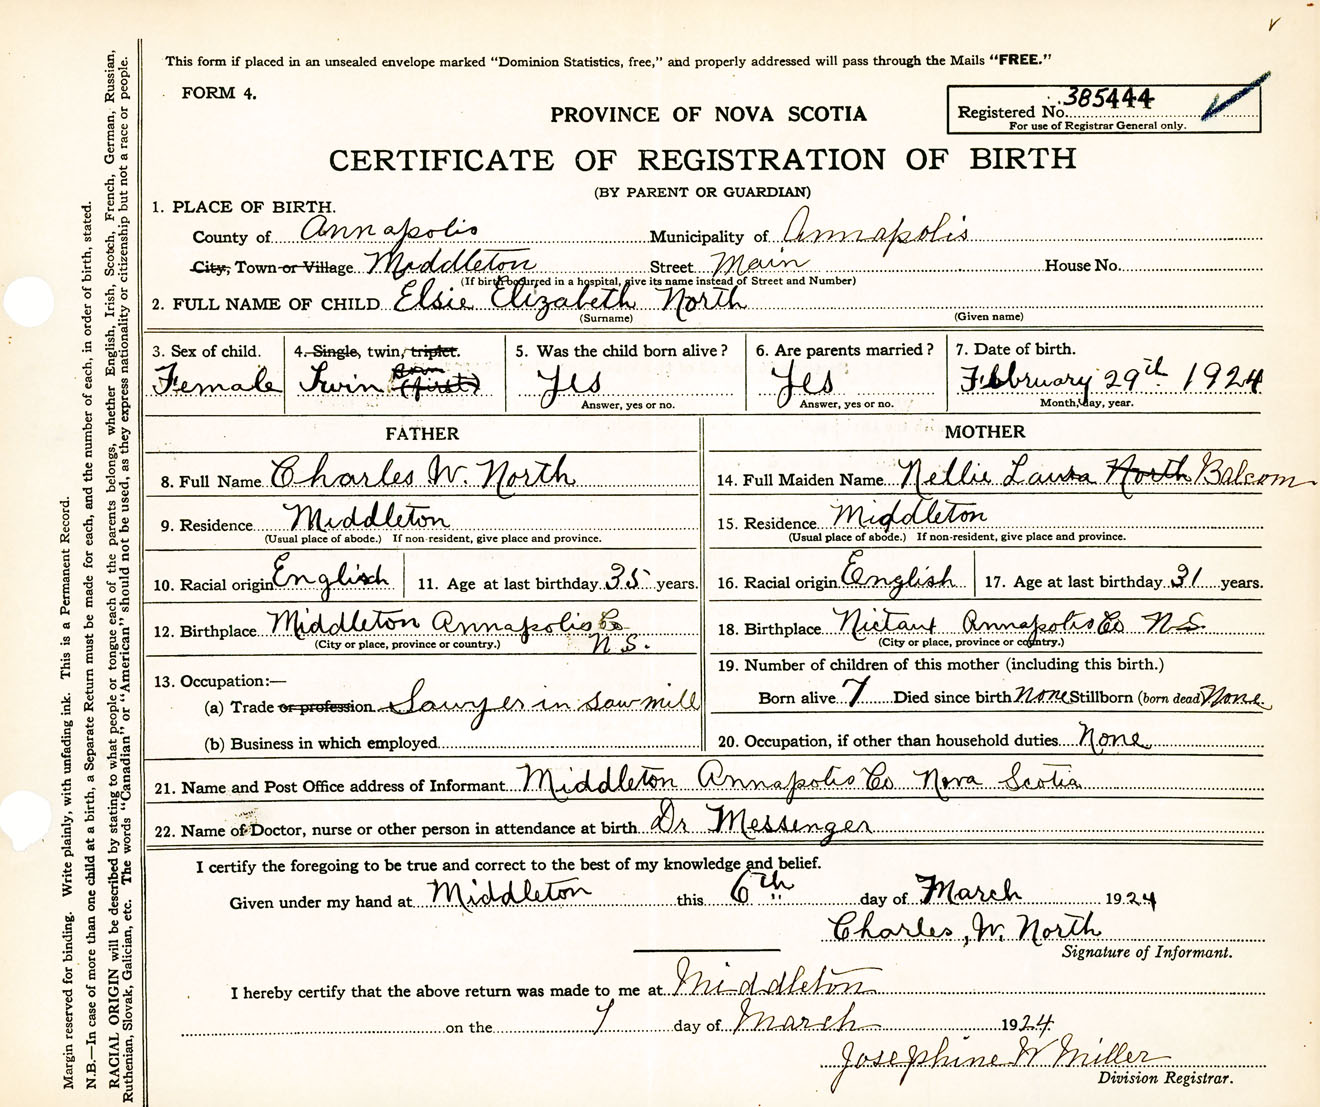 This form if placed in an unsealed envelope marked "Dominion Statistics, free," and properly addressed will pass through the Mails "FREE."
FORM 4.
PROVINCE OF NOVA SCOTIA
Registered No. 385444
For use of Registrar General only.
CERTIFICATE OF REGISTRATION OF BIRTH
(BY PARENT OR GUARDIAN)
1. PLACE OF BIRTH.
County of Annapolis Municipality of Annapolis
City, Town or Village Middleton Street Main House No.
(If birth occurred in a hospital, give its name instead of Street and Number)
2. FULL NAME OF CHILD Elsie Elizabeth North
(Surname) (Given name)
3. Sex of child. 4. Single, twin, triplet. 5. Was the child born alive? 6. Are parents married? 7. Date of birth.
Female Twin Born (first) Yes Yes February 29th 1924
Answer, yes or no. Answer, yes or no. Month, day, year.
FATHER MOTHER
8. Full Name Charles W. North 14. Full Maiden Name Nellie Laura North Balcom
9. Residence Middleton 15. Residence Middleton
(Usual place of abode.) If non-resident, give place and province. (Usual place of abode.) If non-resident, give place and province.
10. Racial origin English 11. Age at last birthday 35 years. 16. Racial origin English 17. Age at last birthday 31 years.
12. Birthplace Middleton Annapolis Co N.S. 18. Birthplace Nictaux Annapolis Co N.S.
(City or place, province or country.) (City or place, province or country.)
19. Number of children of this mother (including this birth.)
13. Occupation:—
(a) Trade or profession Sawyer in saw mill Born alive 7 Died since birth None Stillborn (born dead) None
(b) Business in which employed 20. Occupation, if other than household duties None
21. Name and Post Office address of Informant Middleton Annapolis Co Nova Scotia
22. Name of Doctor, nurse or other person in attendance at birth Dr Messenger
I certify the foregoing to be true and correct to the best of my knowledge and belief.
Given under my hand at Middleton this 6th day of March 1924
Charles, W. North
Signature of Informant.
I hereby certify that the above return was made to me at Middleton
on the 7 day of March 1924
Josephine W Miller
Division Registrar.
Margin reserved for binding. Write plainly, with unfading ink. This is a Permanent Record.
N.B.—In case of more than one child at a birth, a Separate Return must be made for each, and the number of each, in order of birth, stated.
RACIAL ORIGIN will be described by stating to what people or tongue each of the parents belongs, whether English, Irish, Scotch, French, German, Russian,
Ruthenian, Slovak, Galician, etc. The words "Canadian" or "American" should not be used, as they express nationality or citizenship but not a race or people.